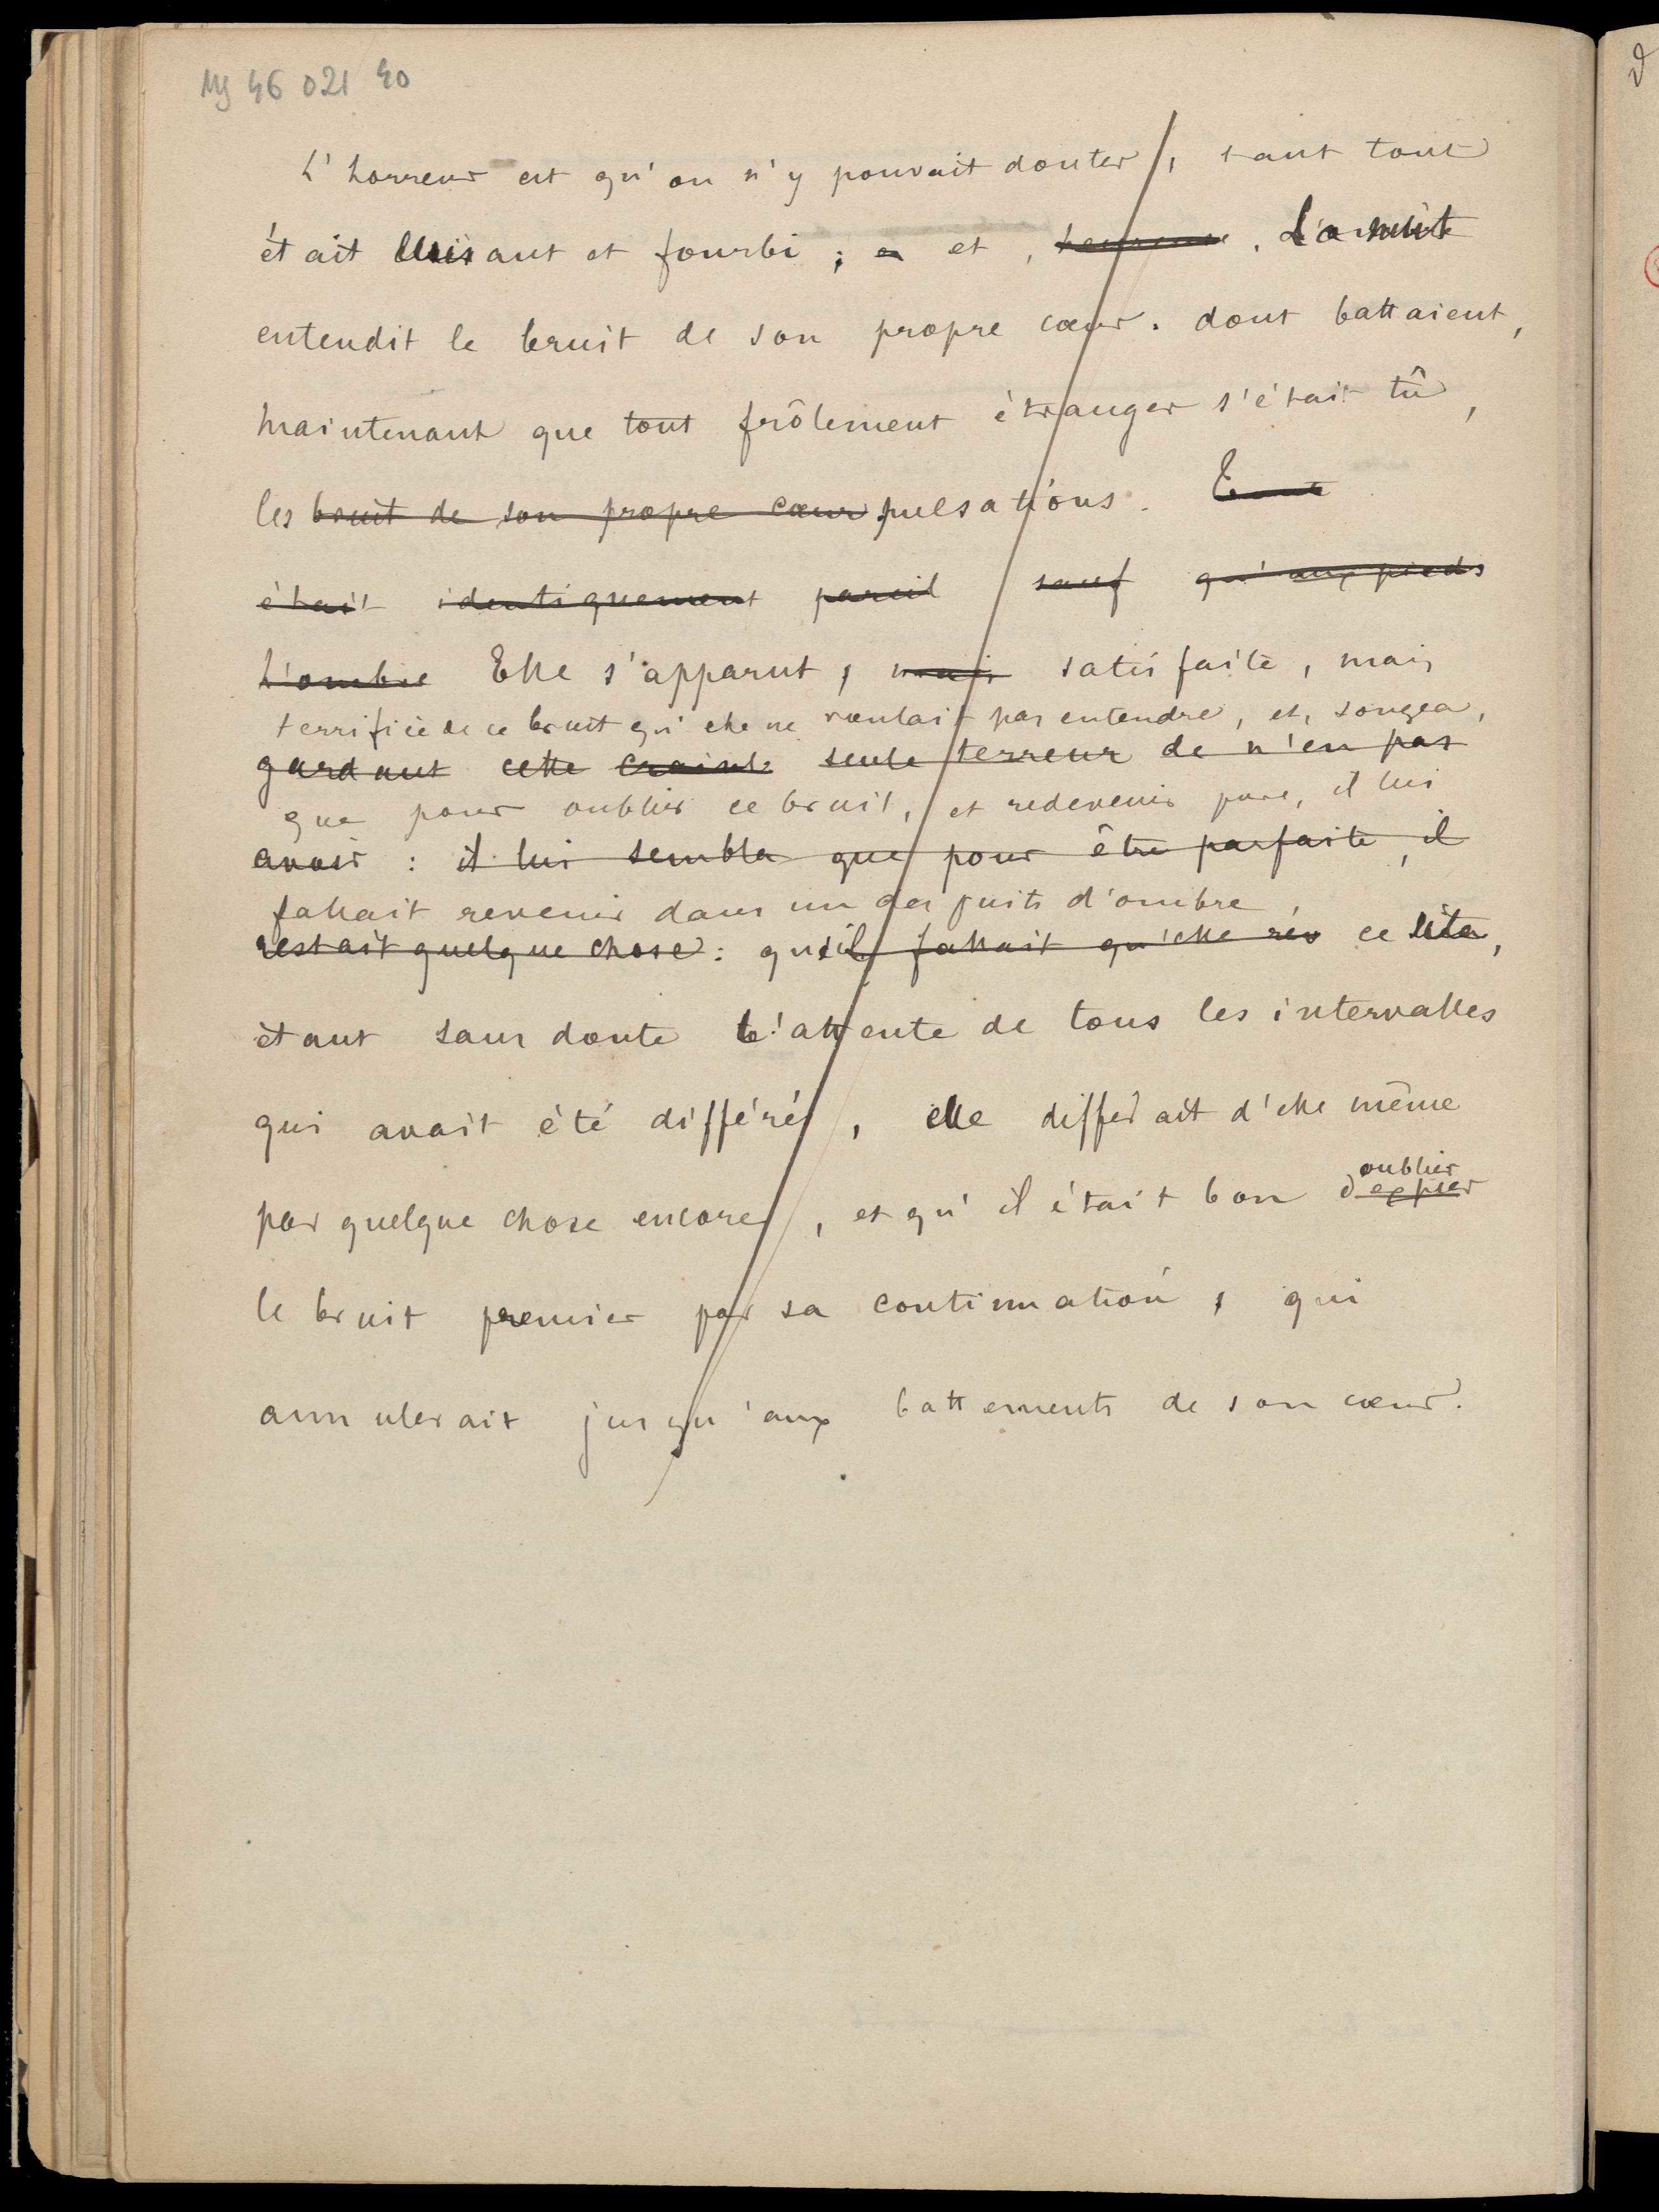 Ms 46 021 40
L'horreur est qu'on n'y pouvait douter, tant tout
était luisant et fourbi ; et, heureuse, La nuit
entendit le bruit de son propre cœur. dont battaient,
maintenant que tout frôlement étranger s'était tû,
les bruit de son propre cœur pulsations.
était identiquement pareil sauf qu'aux pieds
L'ombre Elle s'apparut, mais satisfaite, mais
terrifiée de ce bruit qu'elle ne voulait pas entendre, et, songea,
gardant cette crainte seule terreur de n'en pas
que pour oublier ce bruit, et redevenir pure, il lui
avoir : il lui sembla que pour être parfaite, il
fallait revenir dans un des puits d'ombre,
restait quelque chose : qu'il fallait qu'elle rev ce
étant sans doute l'attente de tous les intervalles
qui avait été différée, elle différait d'elle même
par quelque chose encore, et qu'il était bon d'
oublier
expier
le bruit premier par sa continuation, qui
annulerait jusqu'aux battements de son cœur.